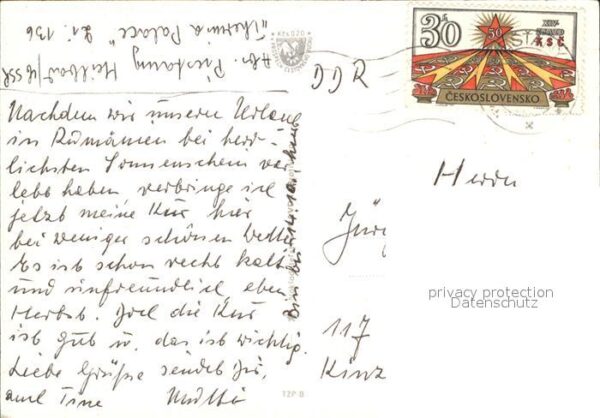 Abs. Pieštany Heilbad/ČSSR
"Thermia Palace" Zi. 136
Kčs 0,20
30
50
XIV.
SJEZD
KSČ
ČESKOSLOVENSKO
DDR
Nachdem wir unsern Urlaub
in Rumänien bei herr-
lichsten Sonnenschein ver
lebt haben verbringe ich
jetzt meine Kur hier
bei weniger schönen Wetter
Es ist schon recht kalt
und unfreundlich, eben
Herbst. Doch die Kur
ist gut u. das ist wichtig.
Liebe Grüße sendet Dir,
auch Tine Mutti
Bin bis 14.10. hier
Herrn
Jürg
117
Kinz
privacy protection
Datenschutz
TZP B